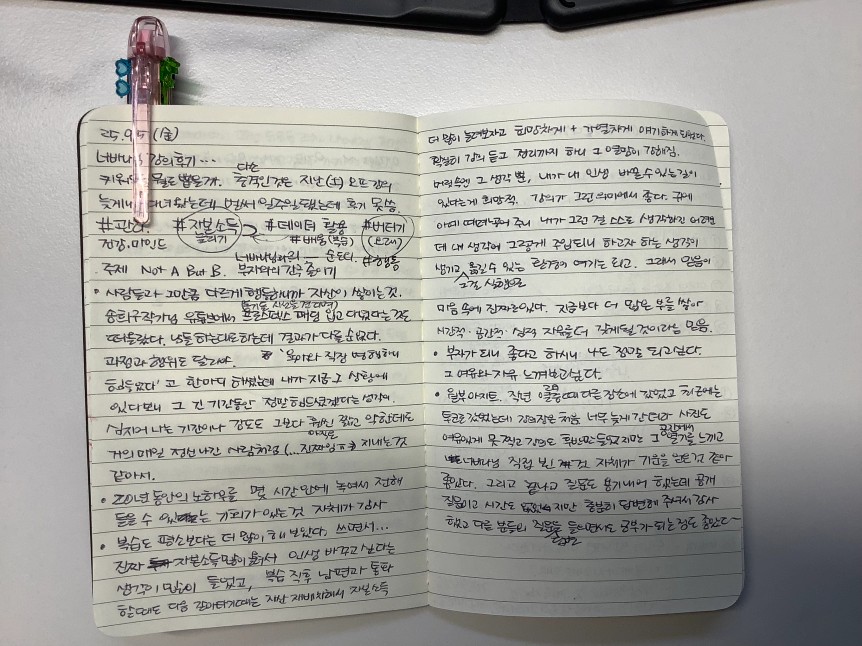 25.9.5 (金)
너바나님 강의후기...
키워드는 무얼로 뽑을까. 충격인 것은 지난(土) 오프 강의 다은
늦게까지 다녀왔는데 벌써 일주일 됐는데 후기 못씀.
#자본소득 늘리기 #데이터 활용 #버티기
정감.마인드 #배움(복습) (노래)
너바나님과의 순도리 #행동
주제 Not A But B. 부자와의 간극 줄이기
• 사람들과 그만큼 다르게 행동하니까 자산이 쌓이는 것.
송희구작가님 유튜브에서 프로스펙스 패딩 입고 다녔다는 것도
떠올랐다. 남들 하는대로 하는데 결과가 다를 순 없다.
과정과 행위도 달라야. "육아와 직장 병행하니
힘들었다" 고 한마디 하셨는데 내가 지금 그 상황에
있다보니 그 긴 기간동안 정말 힘드셨겠다는 생각이.
심지어 나는 기간이나 강도도 그보다 훨씬 짧고 약한데도
거의 매일 정신나간 사람처럼 (... 진짜임 ㅠㅠ) 지내는 것
같아서.
• 20년 동안의 노하우를 몇 시간 안에 녹여서 전해
들을 수 있는 기회가 있는 것 자체가 감사
• 복습도 평소보다는 더 많이 해 보았다. 쓰면서...
진짜 자본소득 많이 올려서 인생 바꾸고 싶다는
생각이 많이 들었고, 복습 직후 남편과 통화
할 때도 다음 갈아타기 때는 자산 재배치해서 자본소득
더 많이 늘려보자고 희망차게 + 강렬하게 얘기하게 되었다.
확실히 강의 듣고 정리까지 하니 그 열망이 강해짐.
머릿속엔 그 생각 뿐, 내가 내 인생 바꿀 수 있는 길이
있다는게 희망적. 강의가 그런 의미에서 좋다. 귀에
아예 때려넣어 주니 내가 그런 걸 스스로 생각하긴 어려운
데 내 생각이 그렇게 주입되니 하고자 하는 생각이
생기고 그걸 실행으로 옮길 수 있는 환경이 여기는 되고. 그래서 믿음이
마음 속에 진짜로 있다. 지금보다 더 많은 부를 쌓아
시간적·공간적·심적 자유를 더 갖게 될 것이라는 믿음.
• 부자가 되니 좋다고 하시니 나도 정말 되고싶다.
그 여유와 자유 느껴보고싶다.
• 월부 아지트. 작년 열중 때 다른 강의에 갔었고 최근에는
투코로 갔었는데 강의장은 처음. 너무 늦게 간 터라 사진도
여유있게 못 찍고 강의도 후반만 들었지만 그 공간에서 열기를 느끼고
너바나님 직접 뵌 것 자체가 기운을 받은 것 같아
좋았다. 그리고 끝나고 질문도 용기내어 했는데 공개
질문이고 시간도 없었지만 충분히 답변해 주셔서 감사
했고 다른 분들의 질문 답변을 들으면서도 공부가 되는 점도 좋았다~